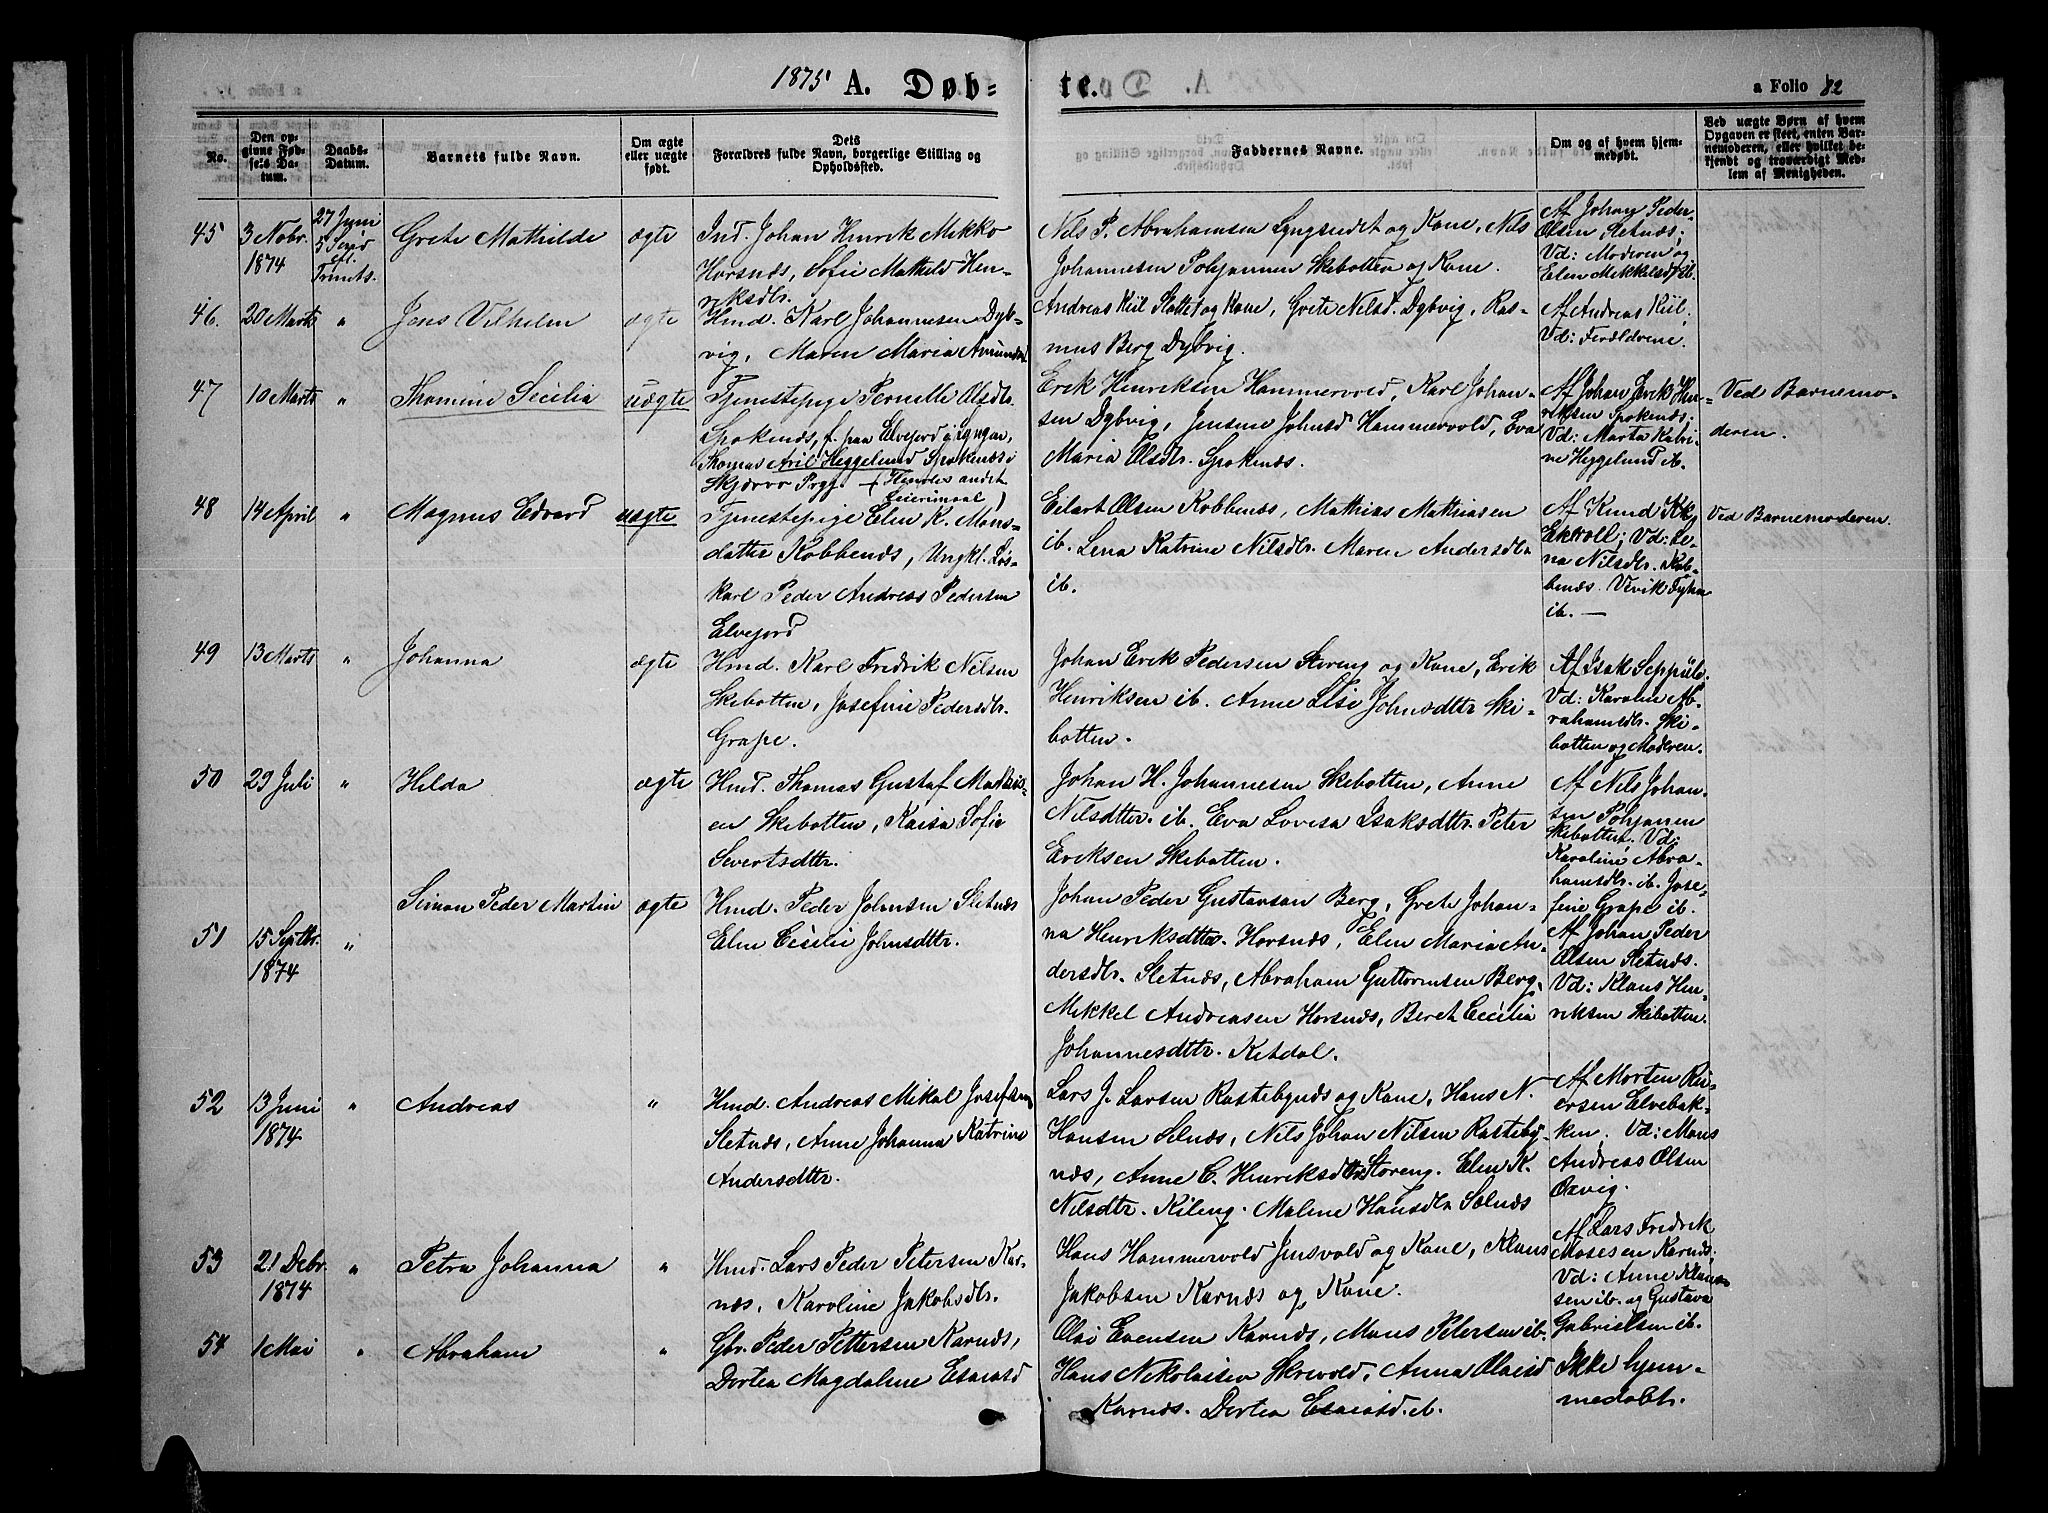 1875 A. Døb-
te.
a Folio 82
No.
Den op-
givne Fød-
sels Da-
tum.
Daabs-
Datum.
Barnets fulde Navn.
Om ægte
eller uægte
født.
Dets
Forældres fulde Navn, borgerlige Stilling og
Opholdssted.
Faddernes Navne.
Om og af hvem hjem-
medøbt.
Ved uægte Børn af hvem
Opgaven er skeet, enten Bar-
nemoderen, eller hvilket be-
kjendt og troværdigt Med-
lem af Menigheden.
45
3 Nobr.
1874
27 Juni
5 Sønd
eft.
Trinits.
Grete Mathilde
ægte
Ind. Johan Henrik Mikko
Horsnæs, Sofie Mathild Hen-
riksdtr.
Nils P. Abrahamsen Lyngseidet og Kone, Nils
Johannesen Pohjannen Skibotten og Kone.
Af Johan Peder
Olsen Sletnæs;
Vd: Moderen og
Elen Mikkelsd ib.
46.
20 Marts
"
Jens Vilhelm
ægte
Hmd. Karl Johannesen Dyb-
vig, Maren Maria Amundsd
Andreas Kiil Slottet og Kone, Grete Nilsd. Dybvig, Ras-
mus Berg Dybvig.
Af Andreas Kiil;
Vd: Forældrene.
47
10 Marts
"
Thomine Secilia
uægte
Tjenestepige Pernelle Olsdtr.
Spokenæs, f. paa Elvejord i Lyngen,
Thomas Aril Heggelund Spokenæs i
Skjærvø Prgj. (Hendes andet
Leiermaal)
Erik Henriksen Hammervold, Karl Johan-
sen Dybvig, Jensine Johnsd Hammervold, Eva
Maria Olsdtr. Spokenæs.
Af Johan Erik Hen-
riksen Spokenæs;
Vd: Marta Katri-
ne Heggelund ib.
Ved Barnemo-
deren.
48
14 April
"
Magnus Edvard
uægte
Tjenestepige Elen K. Mons-
datter Kobbenæs, Ungkl. Løs-
karl Peder Andreas Pedersen
Elvejord
Eilart Olsen Kobbenæs, Mathias Mathiasen
ib. Lena Katrine Nilsdtr. Maren Andersdtr
ib.
Af Knud
Ekroll; Vd: Le-
na Nilsdtr. Kob-
benæs.
ib. —
Ved Barnemoderen.
49
13 Marts
"
Johanna
ægte
Hmd. Karl Fredrik Nilsen
Skibotten, Josefine Pedersdtr.
Grape.
Johan Erik Pedersen Stereng og Kone, Erik
Henriksen ib. Anne Lise Johnsdttr Ski-
botten.
Af Isak Seppülä.
Vd: Karolin Ab-
rahamsdtr. Ski-
botten og Moderen.
50
29 Juli
"
Hilda
ægte
Hmd. Thomas Gustaf Mathis-
en Skibotten, Kaisa Sofie
Sivertsdttr.
Johan H. Johannesen Skibotten, Anne
Nilsdtter. ib. Eva Lovisa Isaksdttr. Peter
Eriksen Skibotten.
Af Nils Johan-
sen Pohjanen
Skibotten. Vd:
Karoline Abra-
hamsdtr. ib. Jose-
fine Grape ib.
51
15 Septbr.
1874
"
Simon Peder Martin
ægte
Hmd. Peder Johnsen Sletnæs
Elen Cecilie Johnsdttr.
Johan Peder Gustavsan Berg, Grete Johan-
na Henriksdttr. Horsnæs, Elen Maria An-
dersdtr. Sletnæs, Abraham Guttormsen Berg,
Mikkel Andreasen Horsnæs, Beret Cecilia
Johannesdttr. Kitdal.
Af Johan Peder
Olsen Sletnæs.
Vd: Klaus Hen-
riksen Skibotten.
52
13 Juni
1874
"
Andreas
"
Hmd. Andreas Mikal Josefsen
Sletnæs, Anne Johanna Katrine
Andersdttr.
Lars J. Larsen Rastebynæs og Kone, Hans N.
Hansen Selnæs, Nils Johan Nilsen Rasteby-
næs, Anne C. Henriksdttr Storeng. Elen K.
Nilsdtr. Kileng. Maline Hansdtr Selnæs
Af Morten Rei-
ersen Elvebak-
ken. Vd: Mons
Andreas Olsen
Oxvig.
53
21 Debr.
1874
"
Petra Johanna
"
Hmd. Lars Peder Petersen Kar-
næs, Karoline Jakobsdtr.
Hans Hammervold Jensvold og Kone, Klaus
Jakobsen Karnæs og Kone.
Af Lars Fredrik
Mosesen Karnæs;
Vd: Anne Klau-
sen ib. og Gustava
Gabrielsen ib.
54
1 Mai
"
Abraham
"
Gbr. Peder Pettersen Karnæs,
Dortea Magdaline Esaiasd
Olai Evensen Karnæs, Mons Petersen ib.
Hans Nikolaisen Skrevold, Anna Olaisd
Karnæs. Dortea Esaiasd. ib.
Ikke hjem-
medøbt.